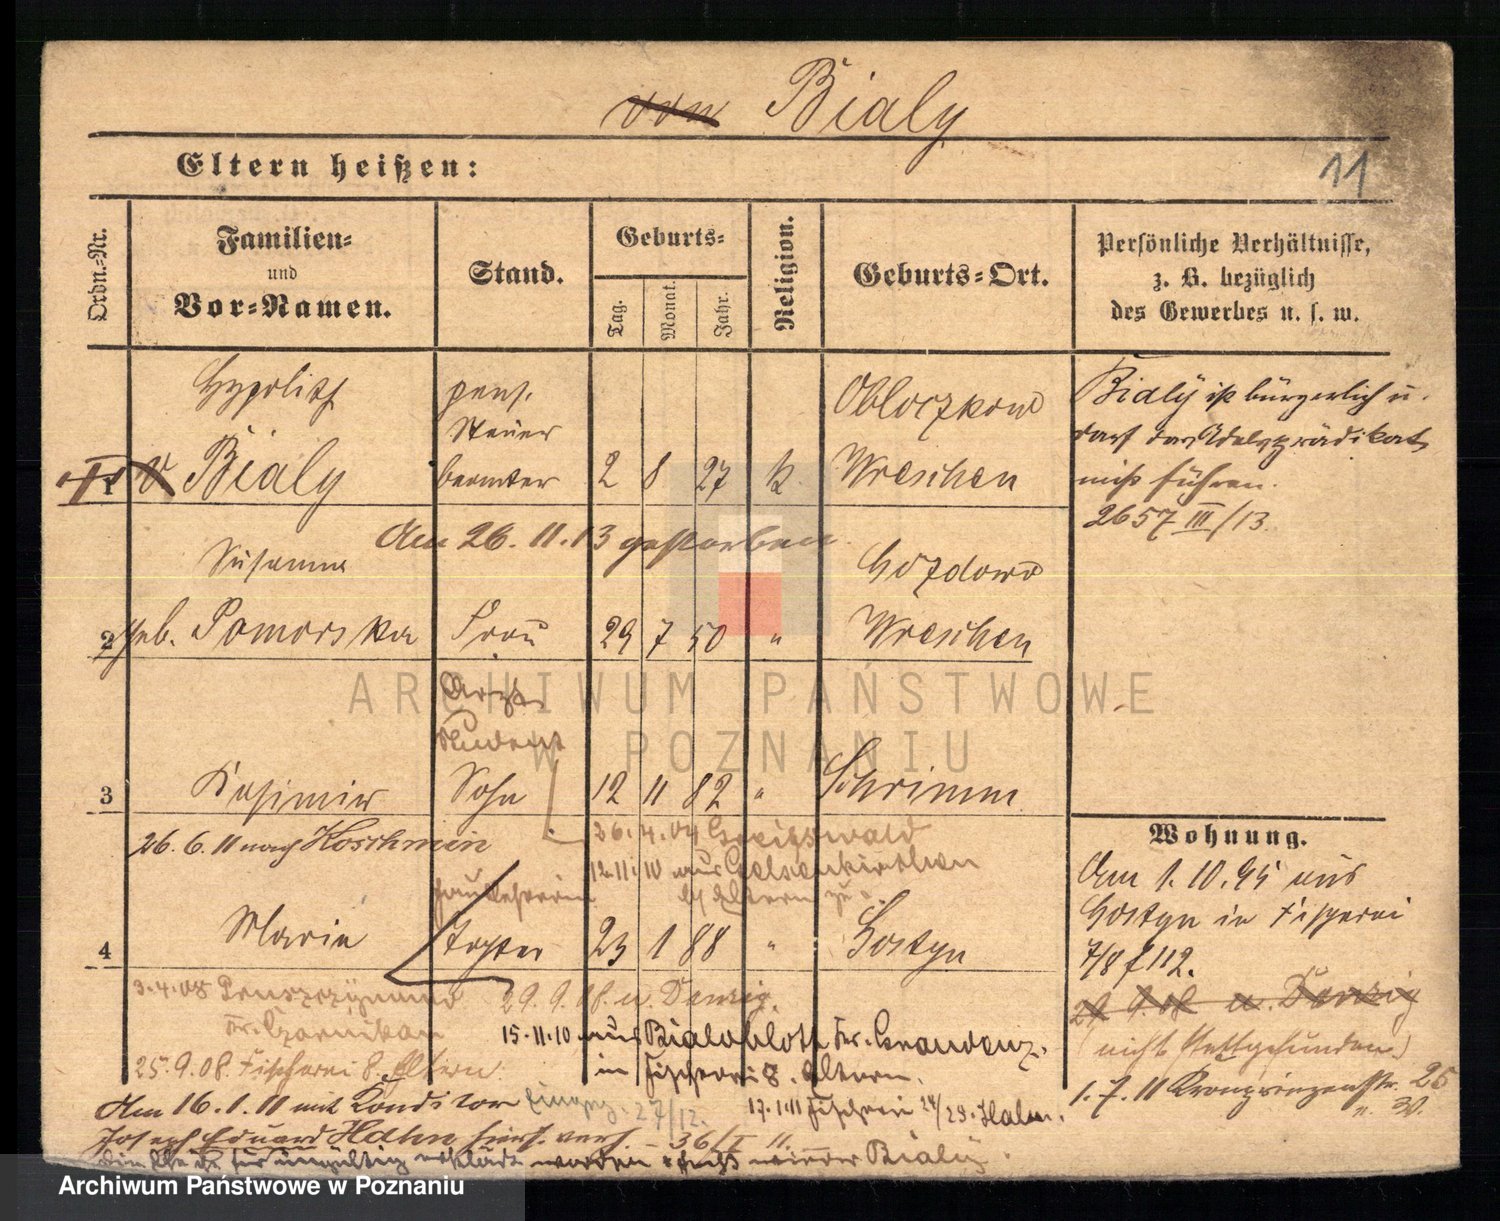 von Bialy
11
Eltern heißen:
Ordn.-Nr.
Familien-
und
Vor-Namen.
Stand.
Geburts-
Tag.
Monat.
Jahr.
Religion.
Geburts-Ort.
Persönliche Verhältnisse,
z. B. bezüglich
des Gewerbes u. s. w.
Hypolith pens. Obloczkowo
Steuer
1 v Bialy beamter 2 8 27 k. Wreschen
Bialy ist bürgerlich u.
darf das Adelsprädikat
nicht führen.
2657 III/13
Am 26.11.13 gestorben
Susanna Gozdowo
2 geb. Pomorska Frau 29 7 50 " Wreschen
Arzt
Student
3 Kasimir Sohn 12 11 82 " Schrimm
26.6.11 nach Koschmin
26.4.04 Greifswald
12.11.10 aus Gelsenkirchen
Hauslehrerin b/ Eltern zu.
4 Maria Tochter 23 1 88 " Gostyn
Wohnung.
Am 1.10.95 aus
Gostyn in Fischerei
7/8 f 112.
29. 9.08 n. Danzig
(nicht stattgefunden.)
1.7.11 Kronprinzenstr. 25
n. 30.
3.4.08
Kr. Czarnikau
29.9.08. n. Danzig.
15.11.10 aus Bialoblott Kr. Graudenz.
in Fischerei 8. Eltern.
25.9.08. Fischerei 8. Eltern.
17.1.11 Fischerei 24/25. Hahn.
Am 16.1.11 mit Konditor 27/12.
Joseph Eduard Hahn hiers. verh. - 36/I 11.
Die Ehe ist für ungültig erklärt worden heißt wieder Bialy.
ARCHIWUM PAŃSTWOWE
W POZNANIU
Archiwum Państwowe w Poznaniu